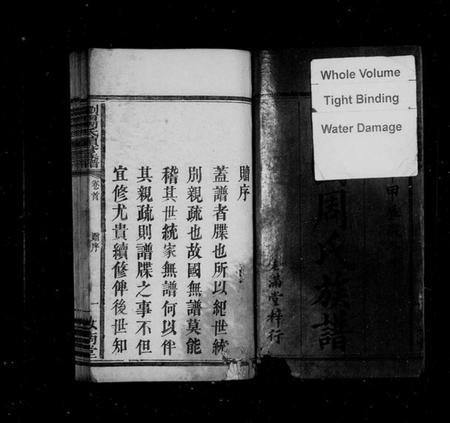 Whole Volume
Tight Binding
Water Damage
周氏族譜
滿堂梓行
贈序
蓋譜者牒也所以紀世統
別親疏也故國無譜莫能
稽其世統家無譜何以伴
其親疏則譜牒之事不但
宜修尤貴續修俾後世知
卷首
贈序
一